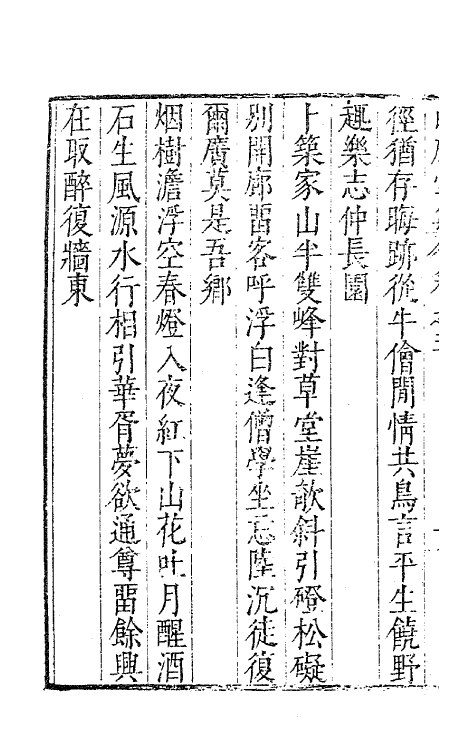 徑猶存晦跡從牛儈閒情共鳥言平生饒野
趣樂志仲長園
卜築家山半雙峰對草堂崖欹斜引磴松礙
別開廊畱客呼浮白逢僧學坐忘陸沉徒復
爾廣莫是吾鄉
烟樹澹浮空春燈入夜紅下山花吐月醒酒
石生風源水行相引華胥夢欲通尊畱餘興
在取醉復牆東